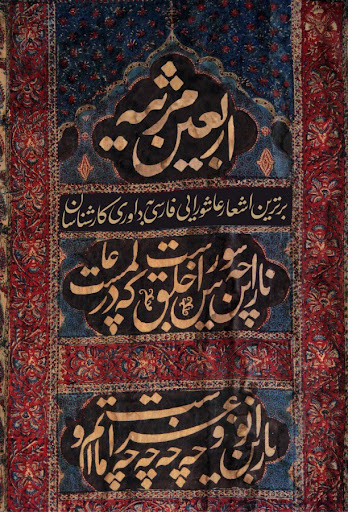 اربعین مرثیه
برترین اشعار عاشورایی فارسی به داوری کارشناسان
باز این چه شورش است که در خلق عالم است
باز این چه نوحه و چه عزا و چه ماتم است